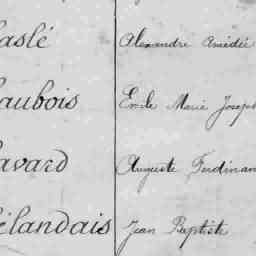 aslé Alexandre Amédée
aubois Emile Marie Joseph
avard Auguste Ferdinan
élandais Jean Baptiste